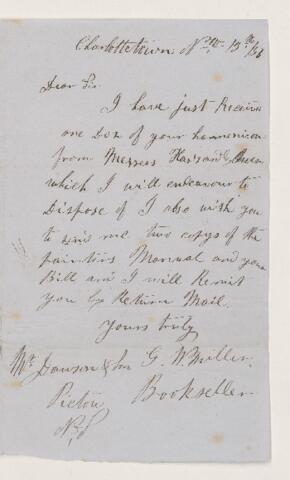 Charlottetown
Dear Sir
I have just Received
one Doz of your harmonicon
from Messrs
which I will endeavour to
Dispose of I also wish you
to send me two copys of the
painters Manual and your
Bill and I will Remit
you by Return Mail.
Yours truly
G. W. Miller.
Bookseller
Mr Dawson & Son
Pictou
N.S